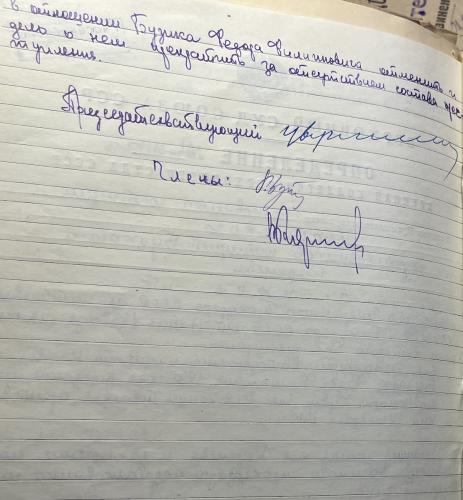 в отношении Бузика Федора Филипповича отменить и
дело о нем прекратить за отсутствием состава прес-
тупления.
Председательствующий
Члены: